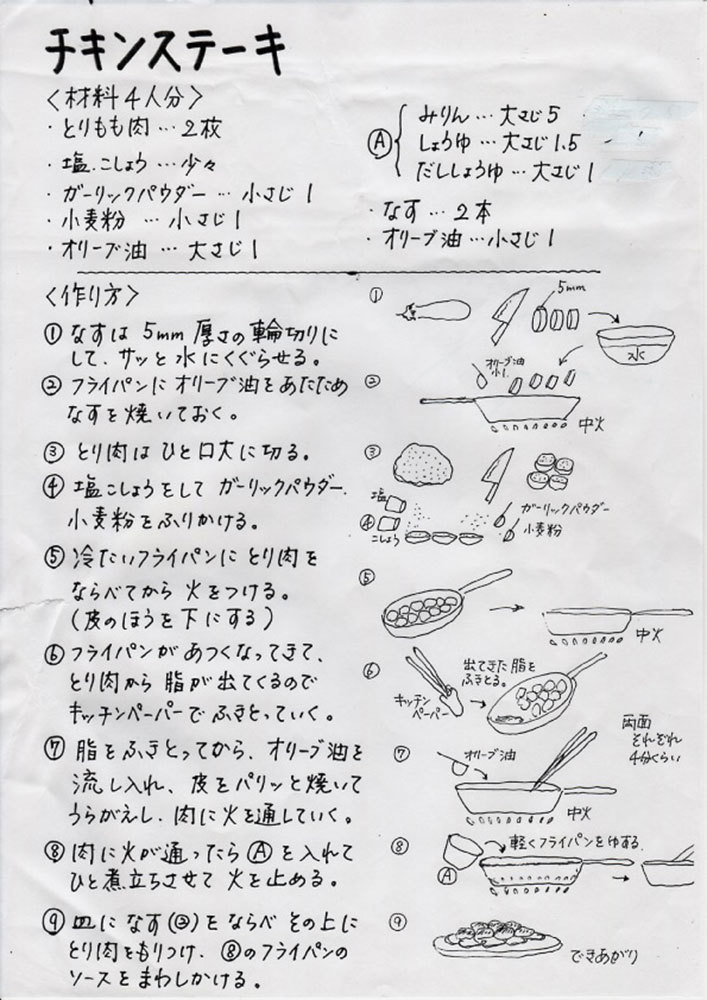 チキンステーキ
〈材料4人分〉
・とりもも肉…2枚
・塩.こしょう…少々
・ガーリックパウダー…小さじ1
・小麦粉…小さじ1
・オリーブ油…大さじ1
Ⓐ
みりん…大さじ5
しょうゆ…大さじ1.5
だししょうゆ…大さじ1
・なす…2本
・オリーブ油…小さじ1
〈作り方〉
①なすは5mm厚さの輪切りに
して、サッと水にくぐらせる。
②フライパンにオリーブ油をあたため
なすを焼いておく。
③とり肉はひと口大に切る。
④塩こしょうをしてガーリックパウダー、
小麦粉をふりかける。
⑤冷たいフライパンにとり肉を
ならべてから火をつける。
(皮のほうを下にする)
⑥フライパンがあつくなってきて、
とり肉から脂が出てくるので
キッチンペーパーでふきとっていく。
⑦脂をふきとってから、オリーブ油を
流し入れ、皮をパリッと焼いて
うらがえし、肉に火を通していく。
⑧肉に火が通ったらⒶを入れて
ひと煮立ちさせて火を止める。
⑨皿になす(②)をならべその上に
とり肉をもりつけ、⑧のフライパンの
ソースをまわしかける。
①
5mm
水
②
オリーブ油
小1
中火
③
塩
④
こしょう
ガーリックパウダー
小麦粉
⑤
中火
⑥
キッチン
ペーパー
出てきた脂を
ふきとる。
⑦
オリーブ油
中火
両面
それぞれ
4分くらい
⑧
Ⓐ
軽くフライパンをゆする
⑨
できあがり